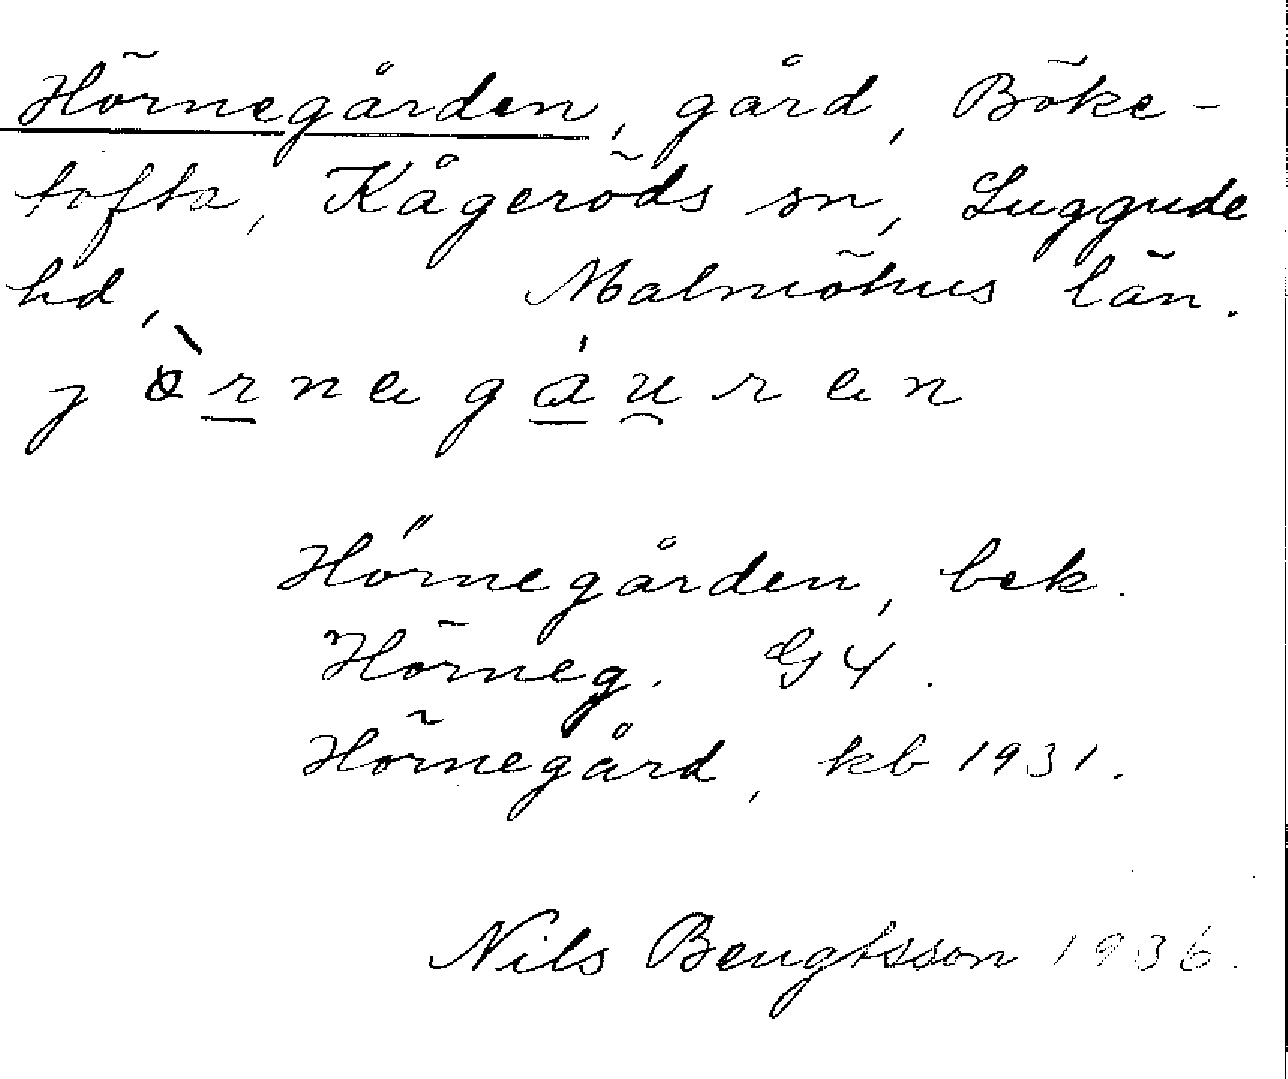 Hörnegården, gård, Böke-
tofta, Kågeröds sn, Luggude
hd, Malmöhus län.
Hörnegården, bek.
Hörneg. G4.
Hörnegård, kb 1931.
Nils Bengtsson 1936.